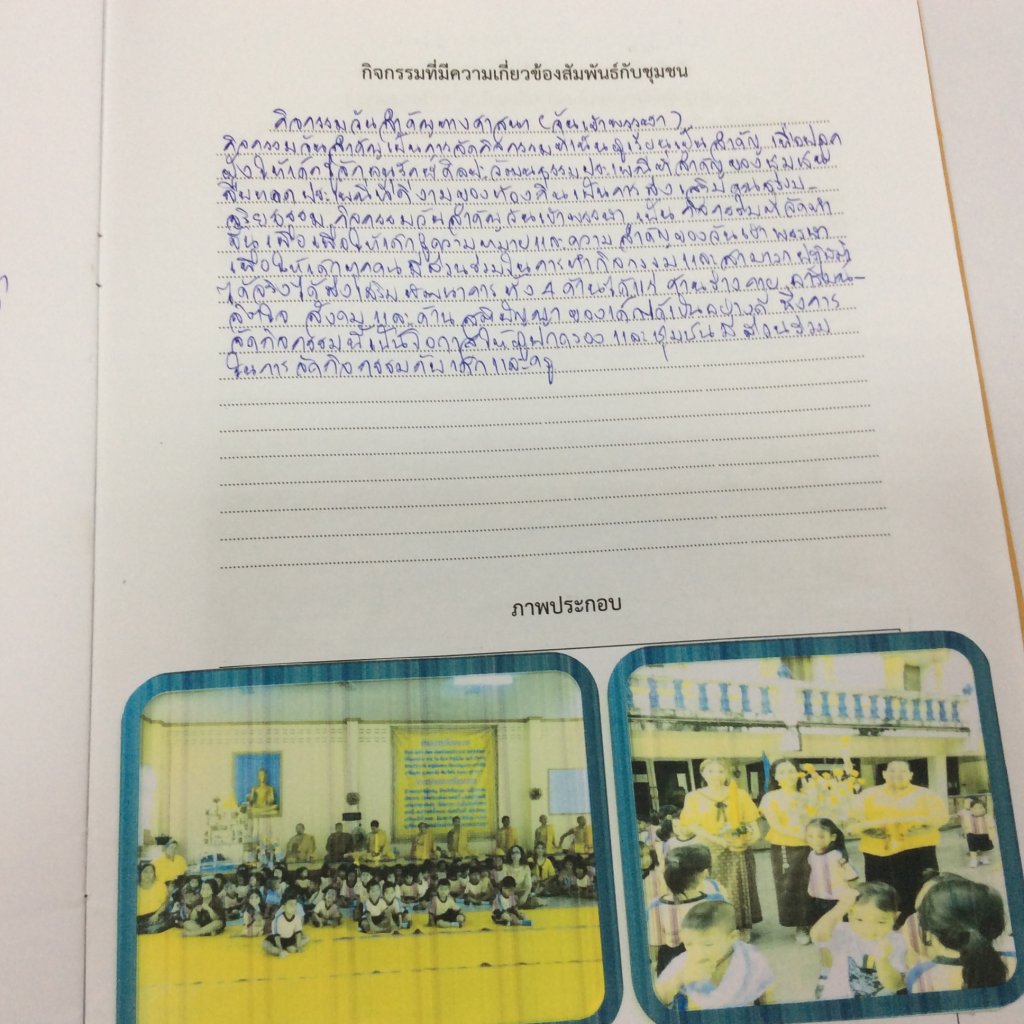 กิจกรรมที่มีความเกี่ยวข้องสัมพันธ์กับชุมชน
กิจกรรมวันสำคัญทางศาสนา (วันเข้าพรรษา)
กิจกรรมวันสำคัญเป็นการจัดกิจกรรมที่เน้นผู้เรียนเป็นสำคัญ เพื่อปลูก
ฝังให้เด็กรู้จักอนุรักษ์ศิลปะวัฒนธรรมประเพณีที่สำคัญของชุมชน
สืบทอดประเพณีที่ดีงามของท้องถิ่นเป็นการส่งเสริมคุณธรรม
จริยธรรม กิจกรรมวันสำคัญวันเข้าพรรษา เป็นกิจกรรมที่จัดทำ
ขึ้นเพื่อเพื่อให้เด็กรู้ความหมายและความสำคัญของวันเข้าพรรษา
เพื่อให้เด็กทุกคนมีส่วนร่วมในการทำกิจกรรมและสามารถปฏิบัติ
ได้จริงได้ส่งเสริมพัฒนาการทั้ง 4 ด้านได้แก่ ด้านร่างกาย อารมณ์-
จิตใจ สังคม และด้านสติปัญญาของเด็กได้เป็นอย่างดี ซึ่งการ
จัดกิจกรรมนี้เป็นโอกาสให้ผู้ปกครองและชุมชนมีส่วนร่วม
ในการจัดกิจกรรมกับเด็กและครู
ภาพประกอบ